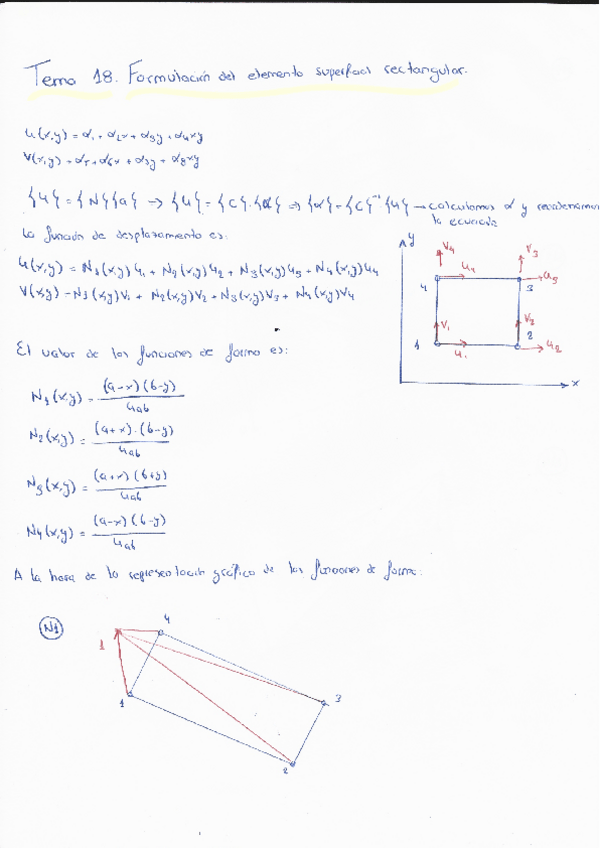 Tema 18. Formulación del elemento superficial rectangular.
u(x,y) = α₁ + α₂x + α₃y + α₄xy
V(x,y) = α₅ + α₆x + α₇y + α₈xy
{u} = {N}{a} → {u} = {C}·{α} ⇒ {α} = {C}⁻¹{u} → calculamos α y reordenamos
la ecuación
La función de desplazamiento es:
u(x,y) = N₁(x,y)u₁ + N₂(x,y)u₂ + N₃(x,y)u₃ + N₄(x,y)u₄
V(x,y) = N₁(x,y)V₁ + N₂(x,y)V₂ + N₃(x,y)V₃ + N₄(x,y)V₄
y
V₄
V₃
u₄
u₃
4
3
V₁
V₂
1
2
u₁
u₂
x
El valor de las funciones de forma es:
N₁(x,y) = (a-x)(b-y) / 4ab
N₂(x,y) = (a+x)·(b-y) / 4ab
N₃(x,y) = (a+x)(b+y) / 4ab
N₄(x,y) = (a-x)(b-y) / 4ab
A la hora de la representación gráfica de las funciones de forma:
N1
4
1
3
1
2